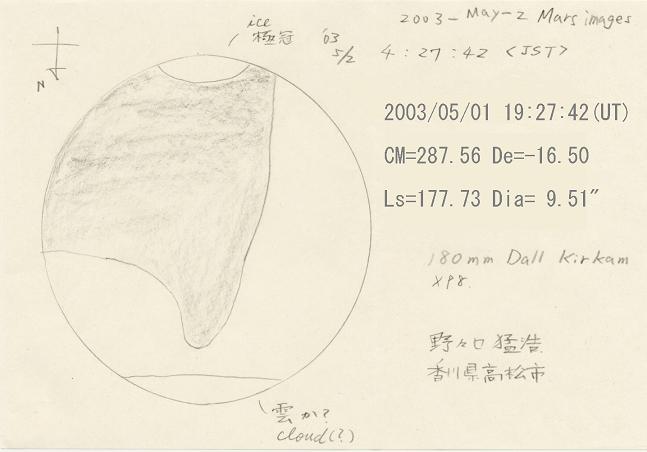 ice
極冠 '03
5/2
N
2003-May-2 Mars images
4:27:42 <JST>
2003/05/01 19:27:42(UT)
CM=287.56 De=-16.50
Ls=177.73 Dia= 9.51"
180mm Dall Kirkam
×98.
野々口 猛浩
香川県高松市
雲か?
cloud(?)